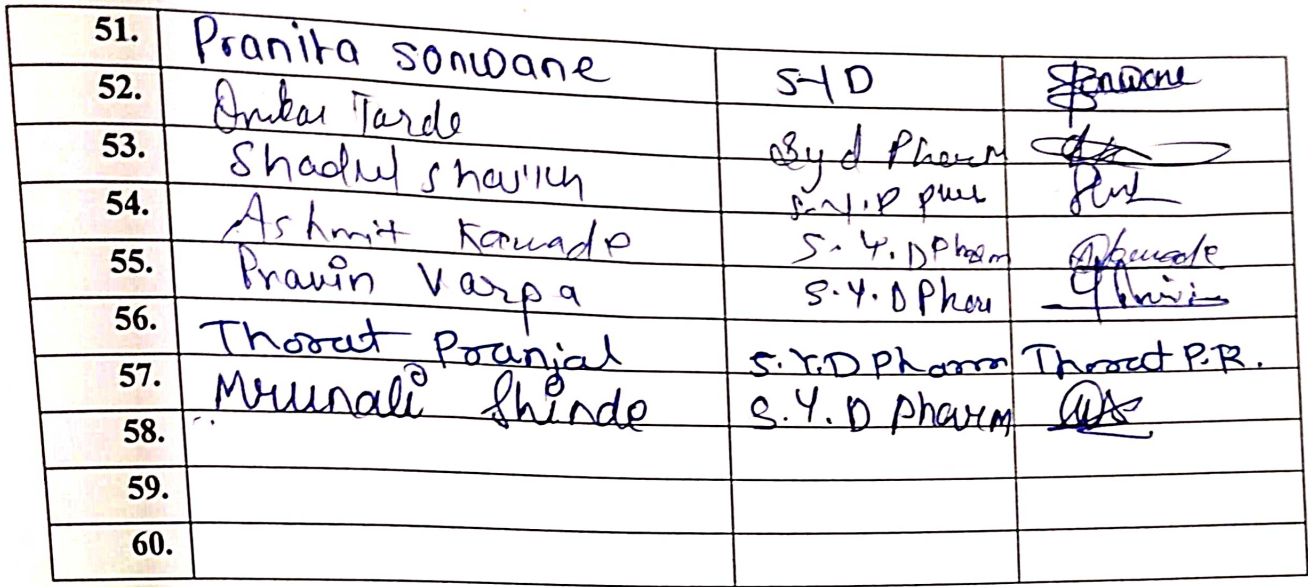 51. Pranita sonwane S-Y D Sonwane
52. Omkar Tarde Sy d Pharm
53. Shadul shaikh S.Y.D
54. Ashmit Kawade S.Y.D Pharm Akawade
55. Pravin Varpa S.Y.D Phar
56. Thorat Pranjal S.Y.D Pharm Thorat P.R.
57. Mrunali Shinde S.Y.D Pharm
58.
59.
60.